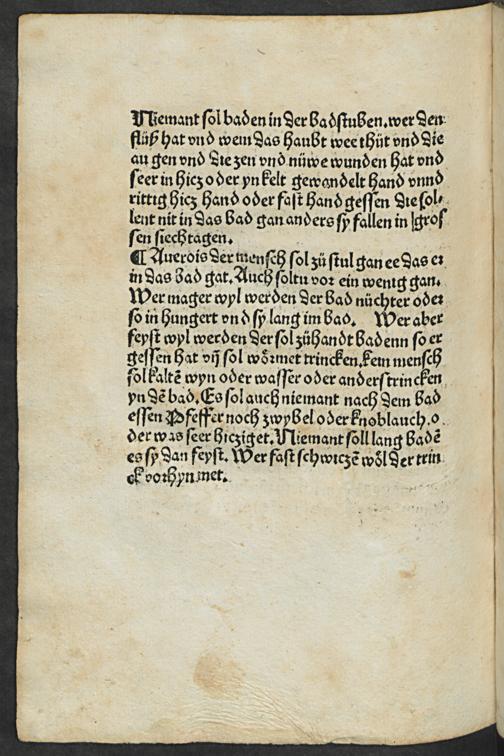 Niemant sol baden in der badstuben. wer den
flüß hat vnd wem das haubt wee thüt vnd die
au gen vnd die zen vnd nüwe wunden hat vnd
seer in hicz oder yn kelt gewandelt hand vnnd
rittig hicz hand oder fast hand gessen die sol⸗
lent nit in das bad gan anders sy fallen in gros
sen siechtagen.
¶ Auerois der mensch sol zü stul gan ee das er
in das bad gat. Auch soltu vor ein wenig gan.
Wer mager wyl werden der bad nüchter oder
so in hungert vnd sy lang im bad. Wer aber
feyst wyl werden der sol zühandt baden so er
gessen hat vñ sol wörmet trincken. kein mensch
sol kaltē wyn oder wasser oder anders trincken
yn dē bad. Es sol auch niemant nach dem bad
essen Pfeffer noch zwybel oder knoblauch. o
der was seer hicziget. Niemant soll lang badē
es sy dan feyst. Wer fast schwiczē wöl der trin
ck vorhyn met.